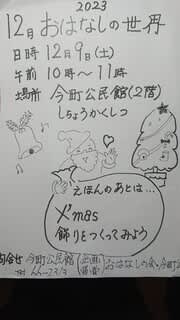 2023
12月おはなしの世界
日時 12月9日(土)
午前 10時〜11時
場所 今町公民館(2階)
しょうかくしつ
えほんのあとは…
X'mas
飾りをつくってみよう
今町公民館
おはなしの